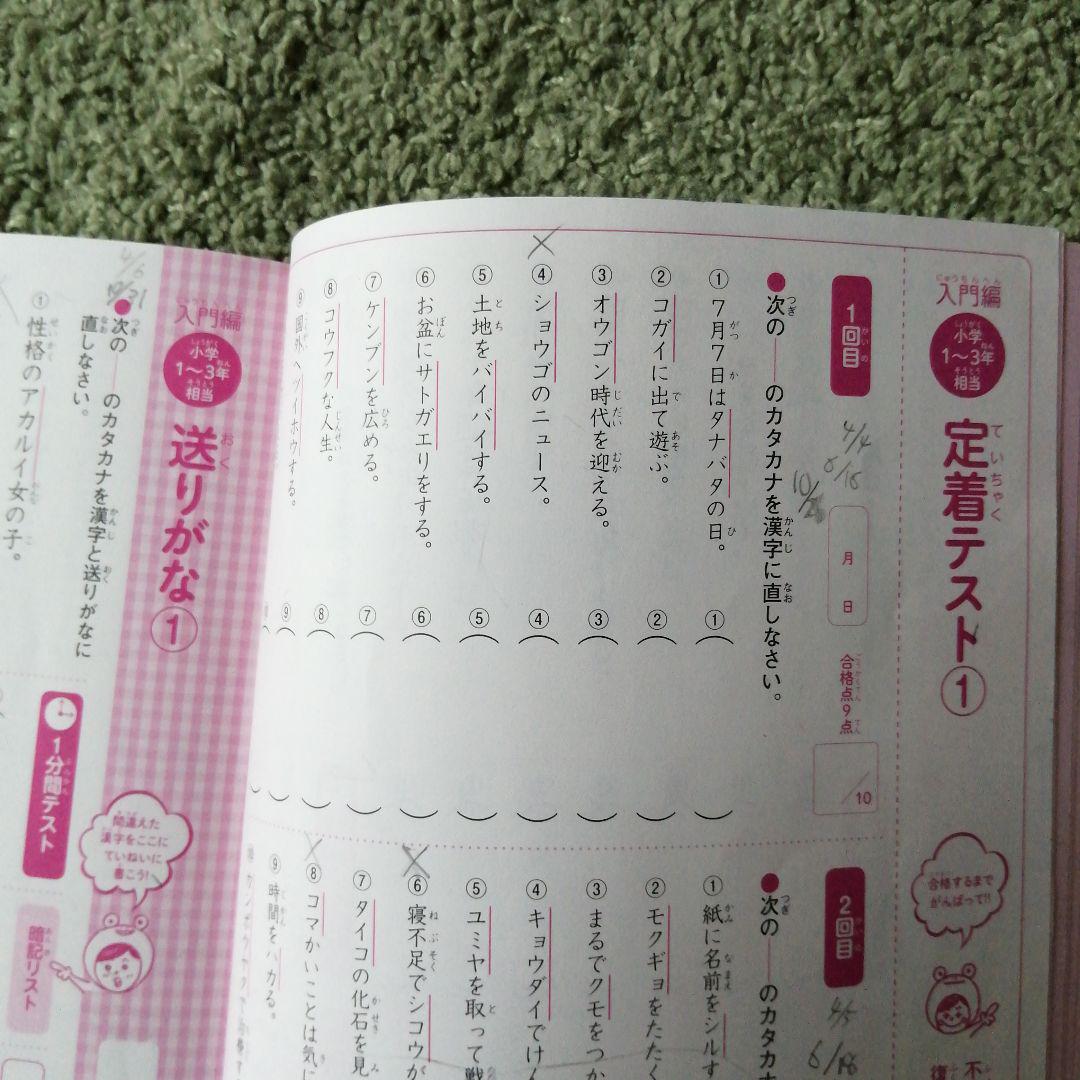 入門編
小学1～3年相当
定着テスト①
合格するまでがんばって!!
1回目
4/4
月 日
合格点9点
/10
●次の――のカタカナを漢字に直しなさい。
①7月7日はタナバタの日。
②コガイに出て遊ぶ。
③オウゴン時代を迎える。
④ショウゴのニュース。
⑤土地をバイバイする。
⑥お盆にサトガエりをする。
⑦ケンブンを広める。
⑧コウフクな人生。
⑨国外へツイホウする。
①
②
③
④
⑤
⑥
⑦
⑧
⑨
2回目
4/5
6/18
●次の――のカタカナ
①紙に名前をシルす
②モクギョをたたく
③まるでクモをつか
④キョウダイでけん
⑤ユミヤを取って戦
⑥寝不足でシコウが
⑦タイコの化石を見
⑧コマかいことは気に
⑨時間をハカる。
入門編
小学1～3年相当
送りがな①
間違えた漢字をここにていねいに書こう!
4/6
●次の――のカタカナを漢字と送りがなに
直しなさい。
①性格のアカルイ女の子。
1分間テスト
暗記リスト